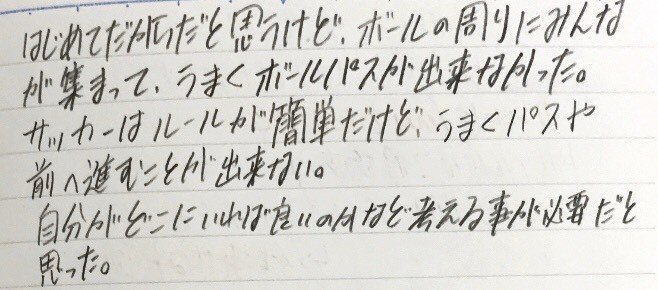 はじめてだからだと思うけど、ボールの周りにみんな
が集まって、うまくボールパスが出来なかった。
サッカーはルールが簡単だけど、うまくパスや
前へ進むことが出来ない。
自分がどこにいれば良いのかなど考える事が必要だと
思った。